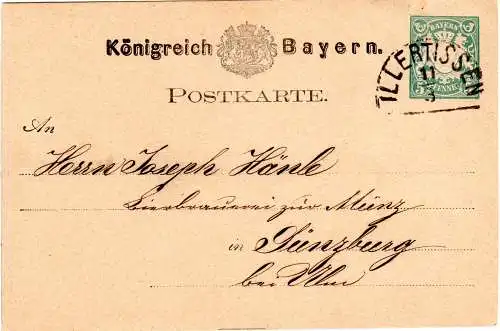 Königreich Bayern.
BAYERN
5 PFENNIG
ILLERTISSEN
11
3
POSTKARTE.
An
Herrn Joseph Hänle
Bierbrauerei zur Münz
in Günzburg
bei Ulm